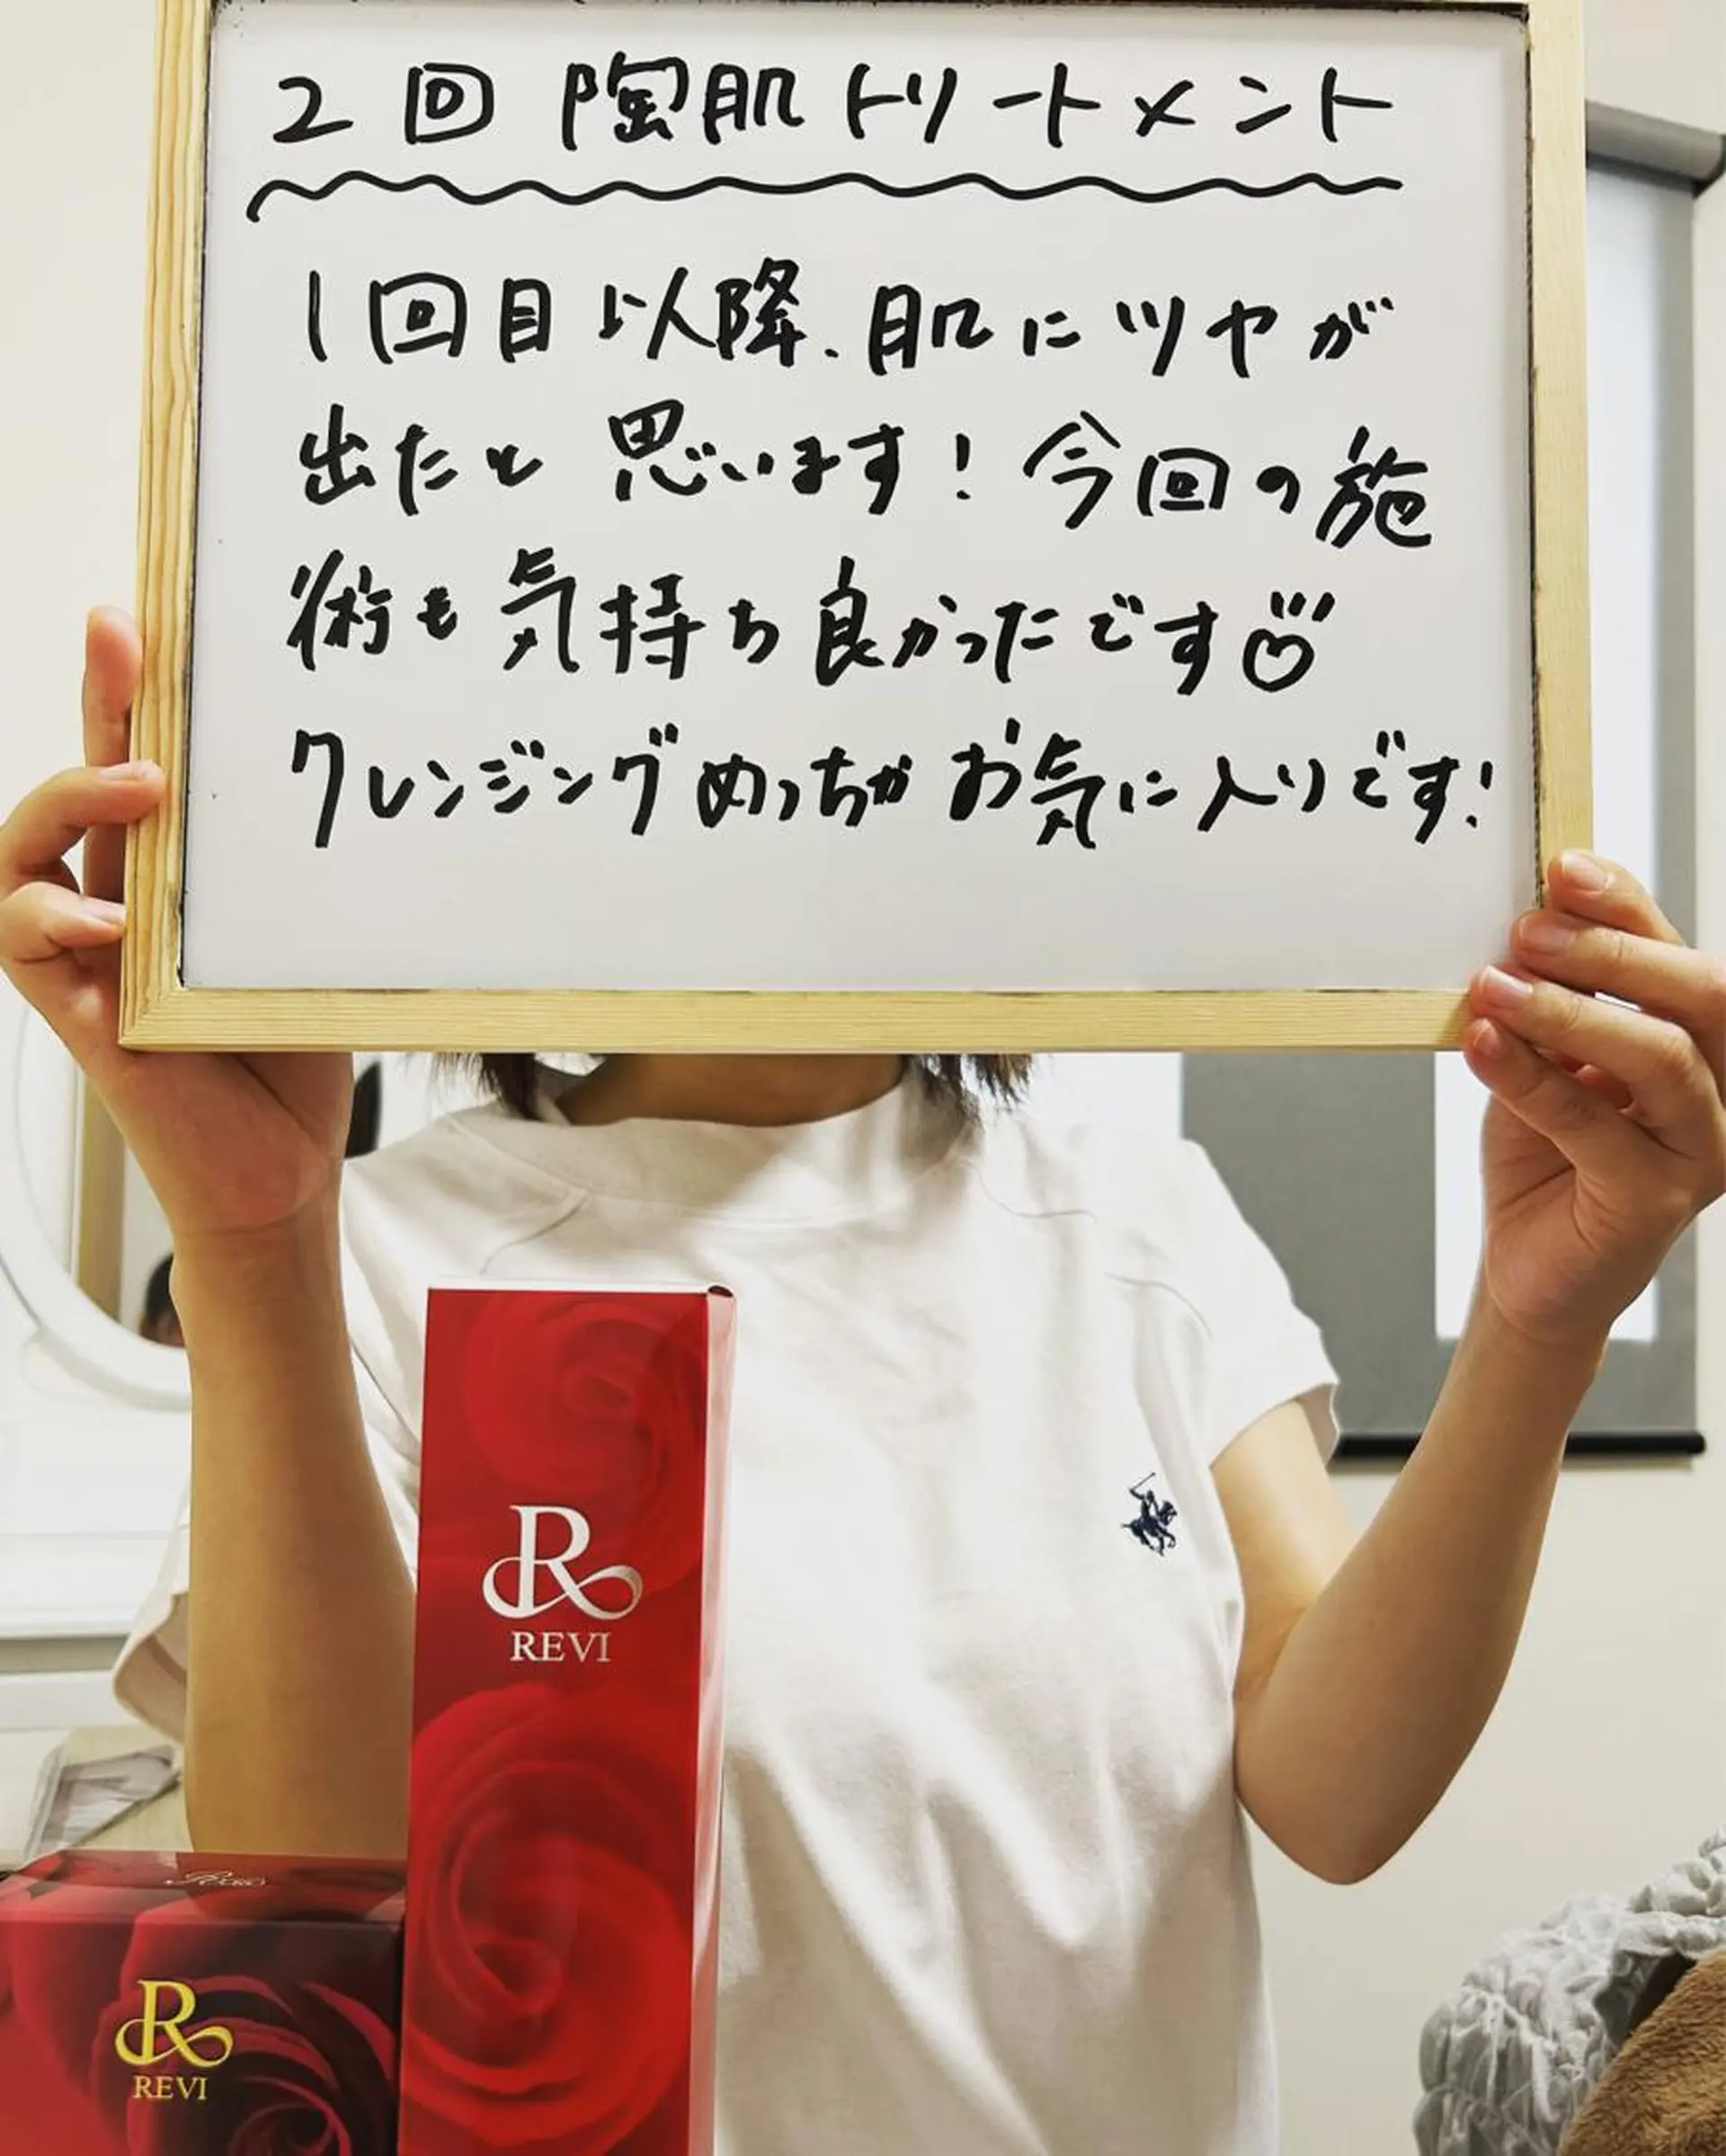 2回 陶肌トリートメント
1回目以降、肌にツヤが
出たと思います!今回の施
術も気持ち良かったです
クレンジングめっちゃお気に入りです!
R
REVI
R
REVI